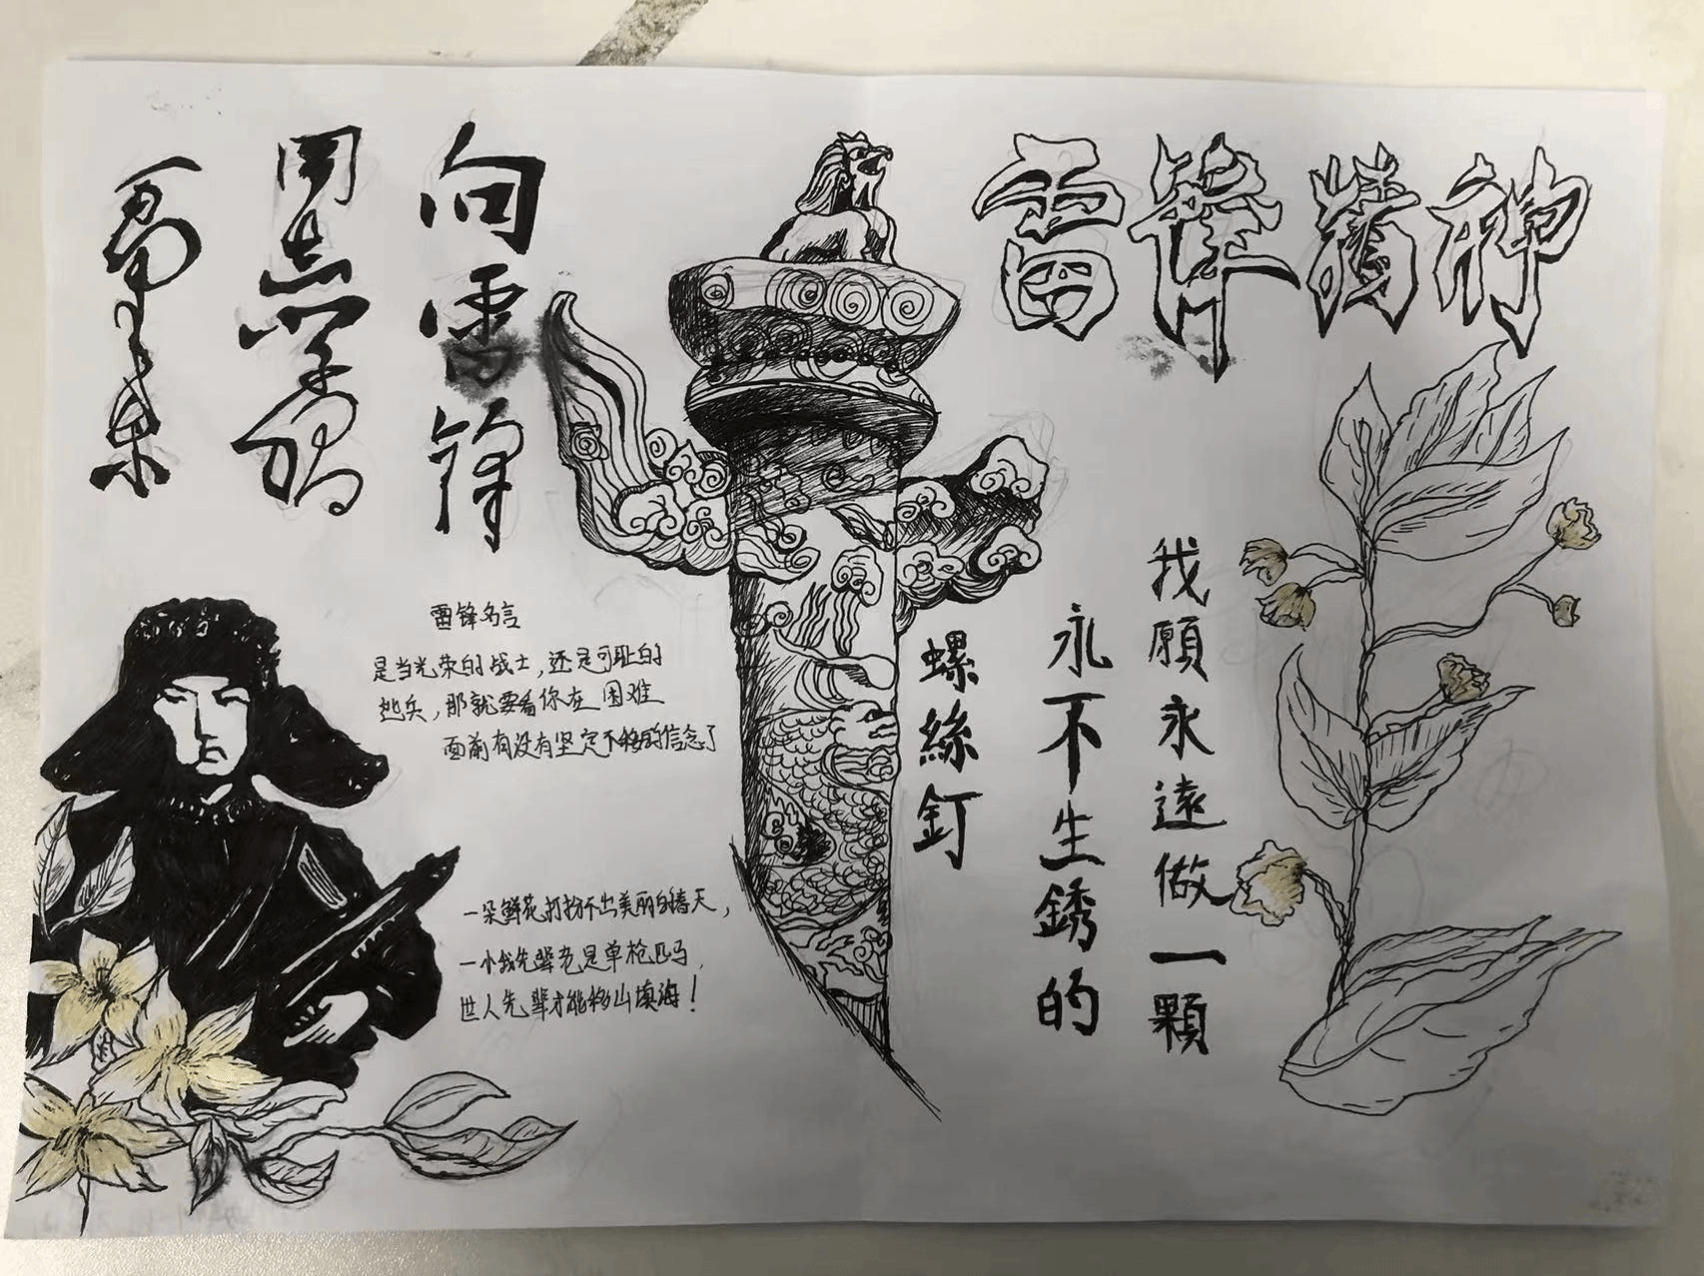 雷锋精神
向雷锋
同志学习
毛泽东
雷锋名言
是当光荣的战士,还是可耻的
逃兵,那就要看你在困难
面前有没有坚定不移的信念了
一朵鲜花打扮不出美丽的春天,
一小我先辈老是单枪匹马,
世人先辈才能移山填海!
我願永遠做一顆
永不生銹的
螺絲釘